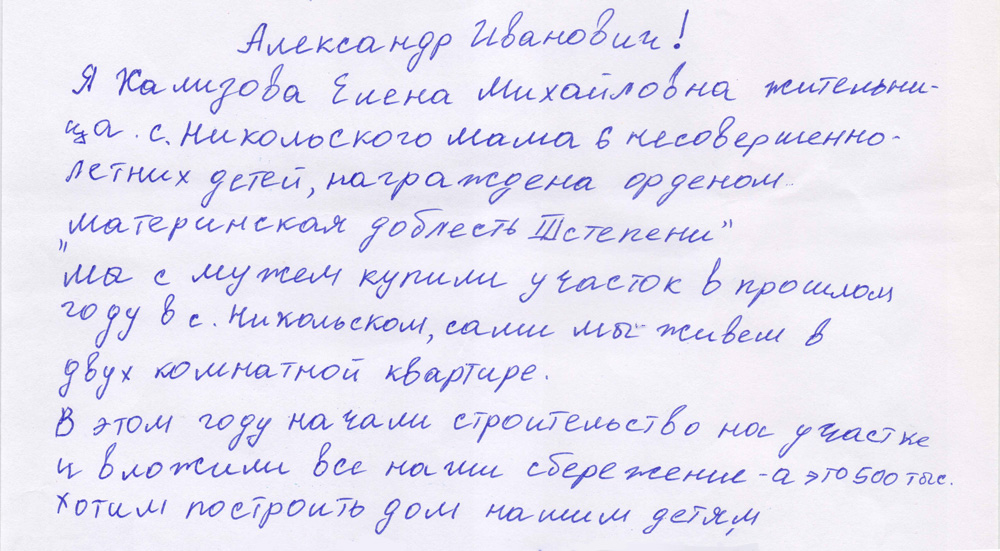 Александр Иванович!
Я Хализова Елена Михайловна жительни-
ца с. Никольского мама 6 несовершенно-
летних детей, награждена орденом
"материнская доблесть III степени"
мы с мужем купили участок в прошлом
году в с. Никольском, сами мы живем в
двух комнатной квартире.
В этом году начали строительство на участке
и вложили все наши сбережение - а это 500 тыс.
хотим построить дом нашим детям,